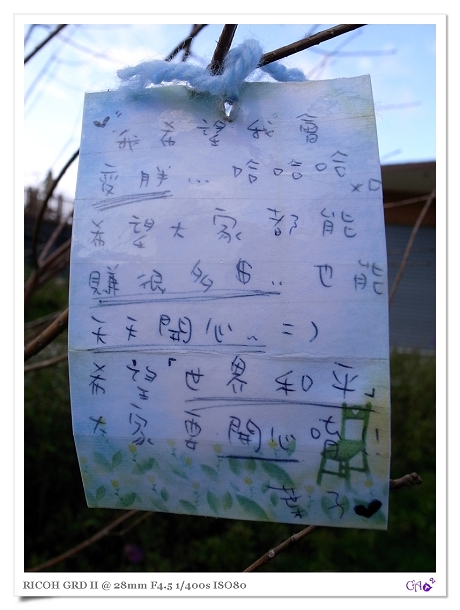 我希望我會
變胖... 哈哈哈 xD
希望大家都能
賺很多$.. 也能
天天開心.. =)
希望「世界和平」
大家要開心唷!
葉子
RICOH GRD II @ 28mm F4.5 1/400s ISO80